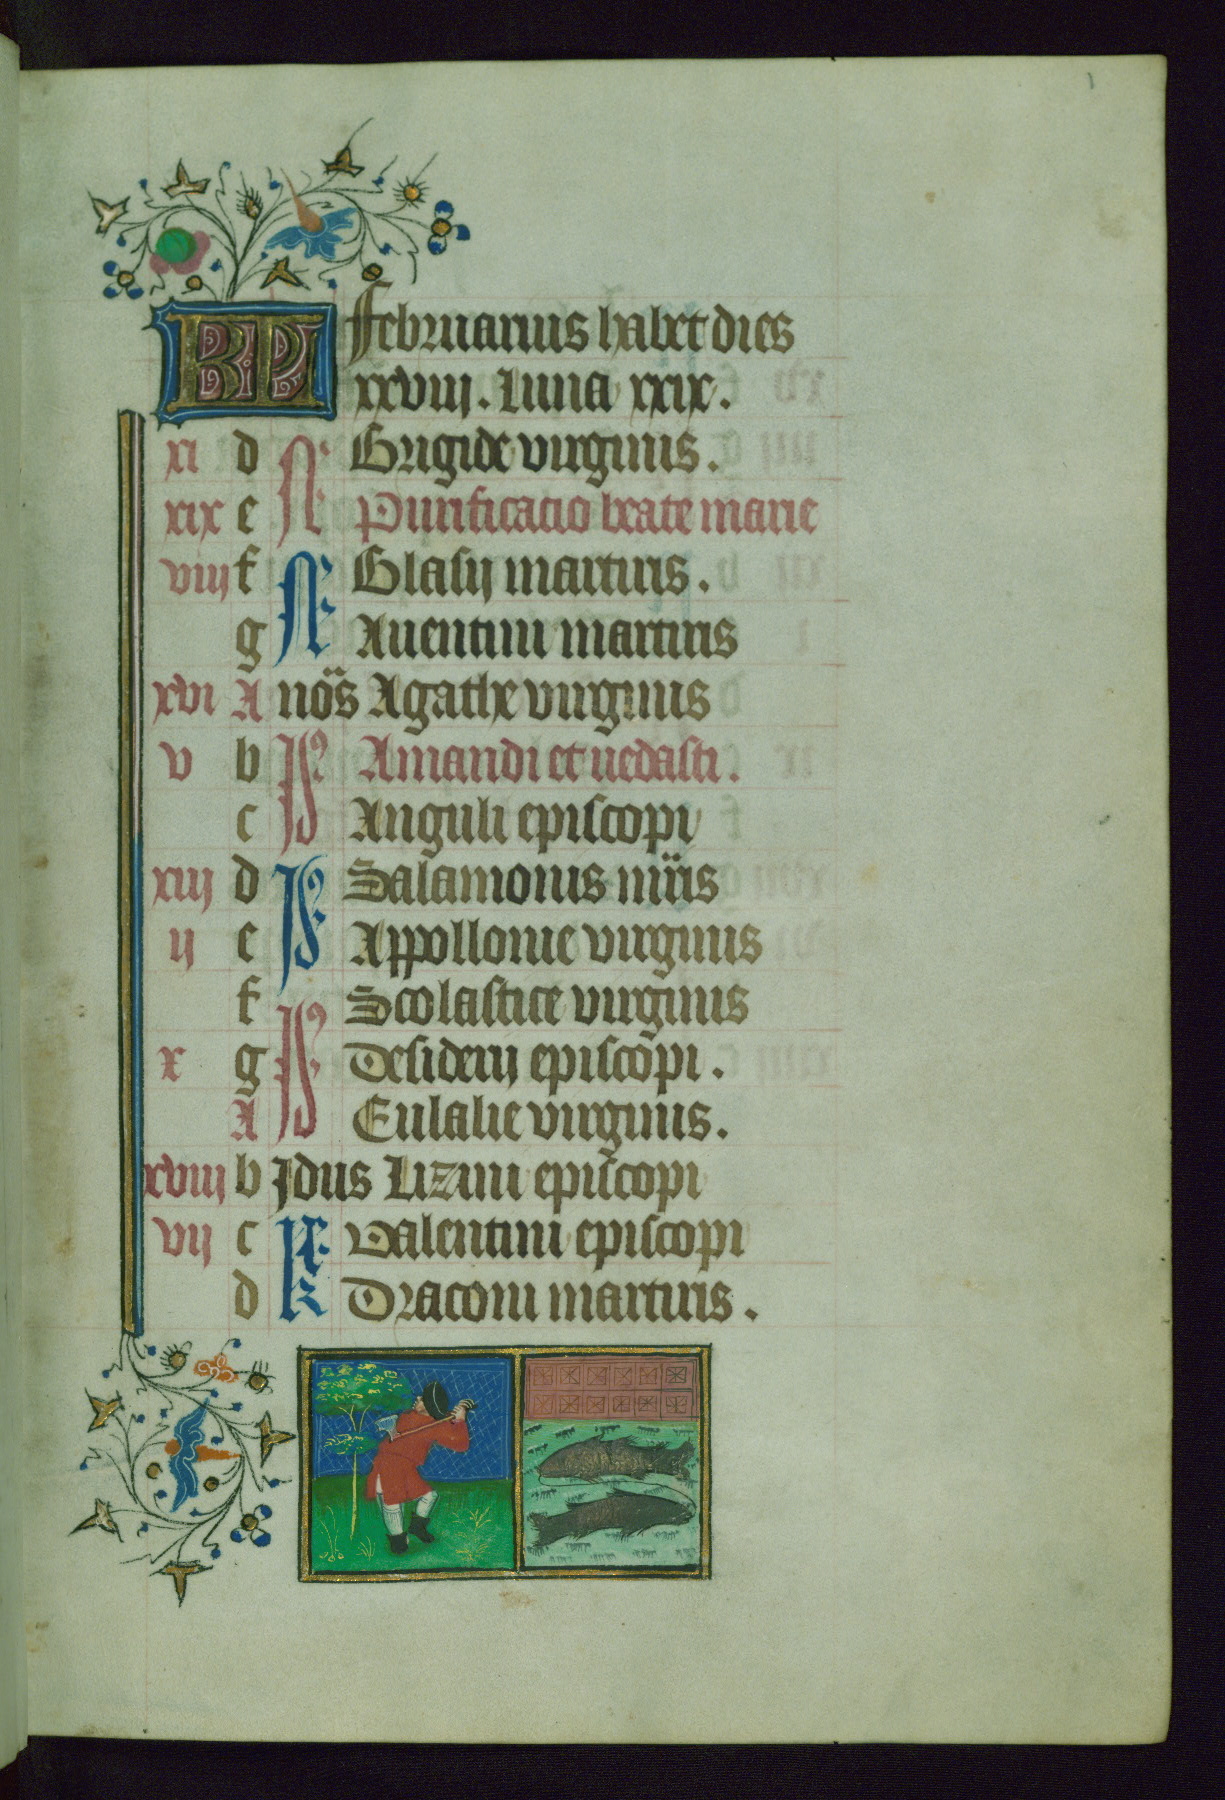 KL Februarius habet dies
xxviij. Luna xxix.
xi d N Brigide virginis.
xix e Purificacio beate marie
viij f N Blasij martiris.
g Auentini martiris
xvi A nōs Agathe virginis
v b Is Amandi et uedasti.
c Anguli episcopi
xiij d Is Salamonis mr̄is
ij e Appollonie virginis
f Scolastice virginis
x g Is Desiderij episcopi.
A Eulalie virginis.
xviij b Idus Lizini episcopi
vij c Valentini episcopi
d kł Draconi martiris.